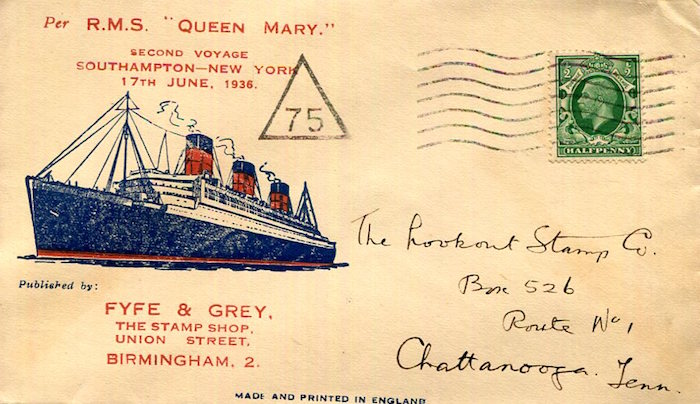 Per R.M.S. "QUEEN MARY."
SECOND VOYAGE
SOUTHAMPTON—NEW YORK
17TH JUNE, 1936.
75
1/2 1/2
HALFPENNY
The Lookout Stamp Co.
Box 526
Route No 1
Chattanooga. Tenn.
Published by:
FYFE & GREY,
THE STAMP SHOP,
UNION STREET,
BIRMINGHAM, 2.
MADE AND PRINTED IN ENGLAND